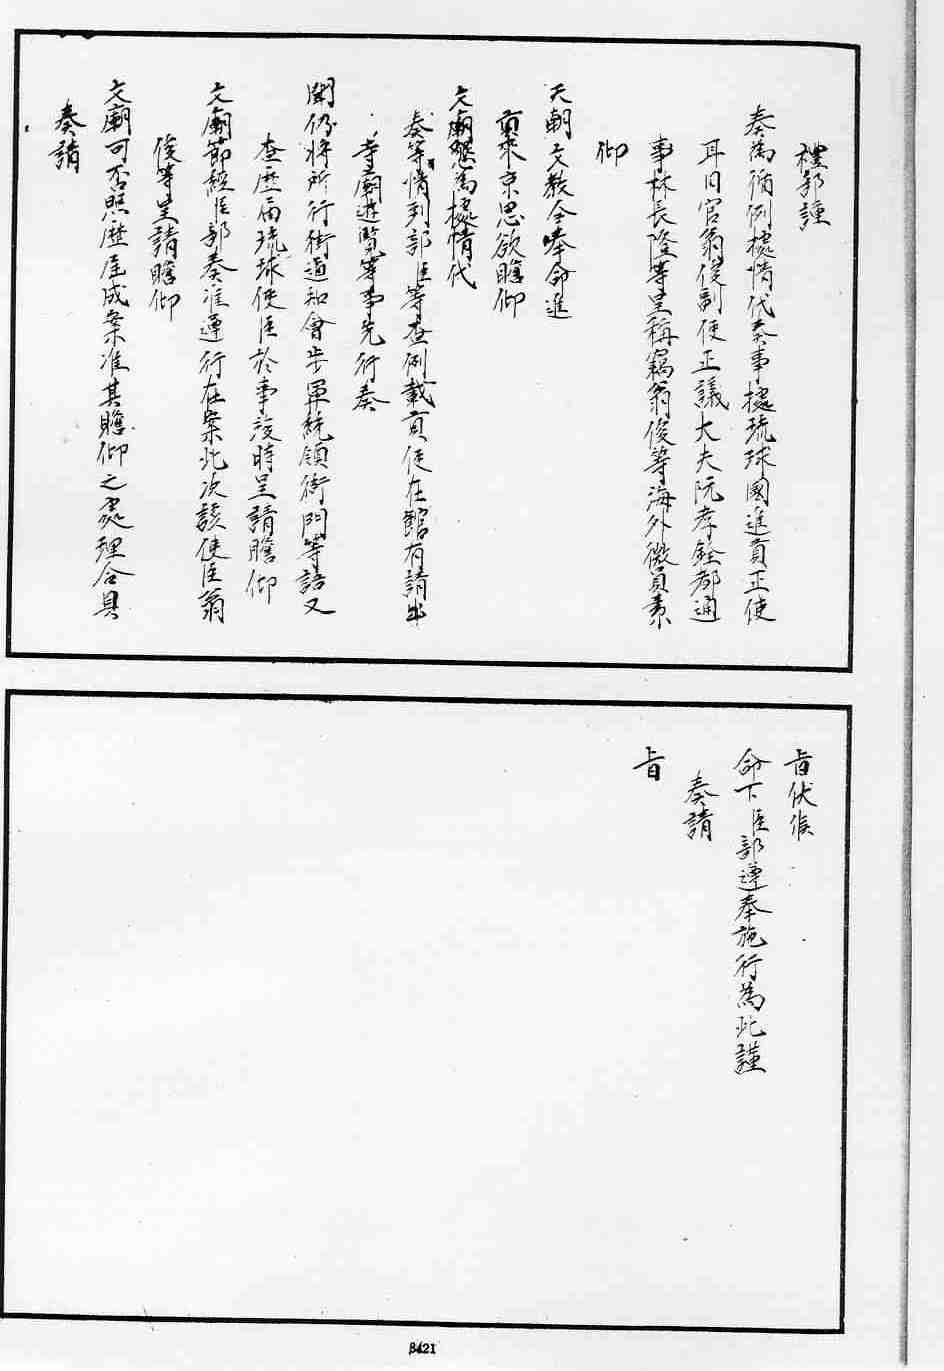 禮部謹
奏為循例據情代奏事據琉球國進貢正使
耳目官翁俊副使正議大夫阮孝銓都通
事林長隆等呈稱竊翁俊等海外微員素
仰
天朝文教今奉命進
貢來京思欲瞻仰
文廟懇為據情代
奏等情到部臣等查例載貢使在館有請出
寺廟遊覽等事先行奏
聞仍將所行街道知會步軍統領衙門等語又
查歷屆琉球使臣於事竣時呈請瞻仰
文廟節經臣部奏准遵行在案此次該使臣翁
俊等呈請瞻仰
文廟可否照歷屆成案准其瞻仰之處理合具
奏請
旨伏候
命下臣部遵奉施行為此謹
奏請
旨
3421